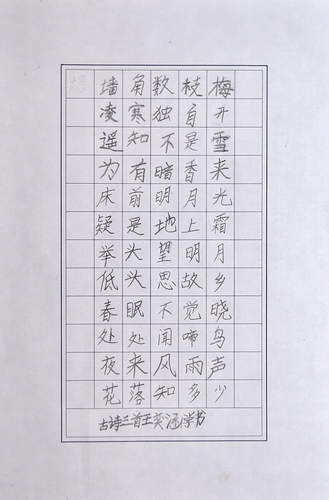 墙角数枝梅
凌寒独自开
遥知不是雪
为有暗香来
床前明月光
疑是地上霜
举头望明月
低头思故乡
春眠不觉晓
处处闻啼鸟
夜来风雨声
花落知多少
古诗三首王奕涵学书